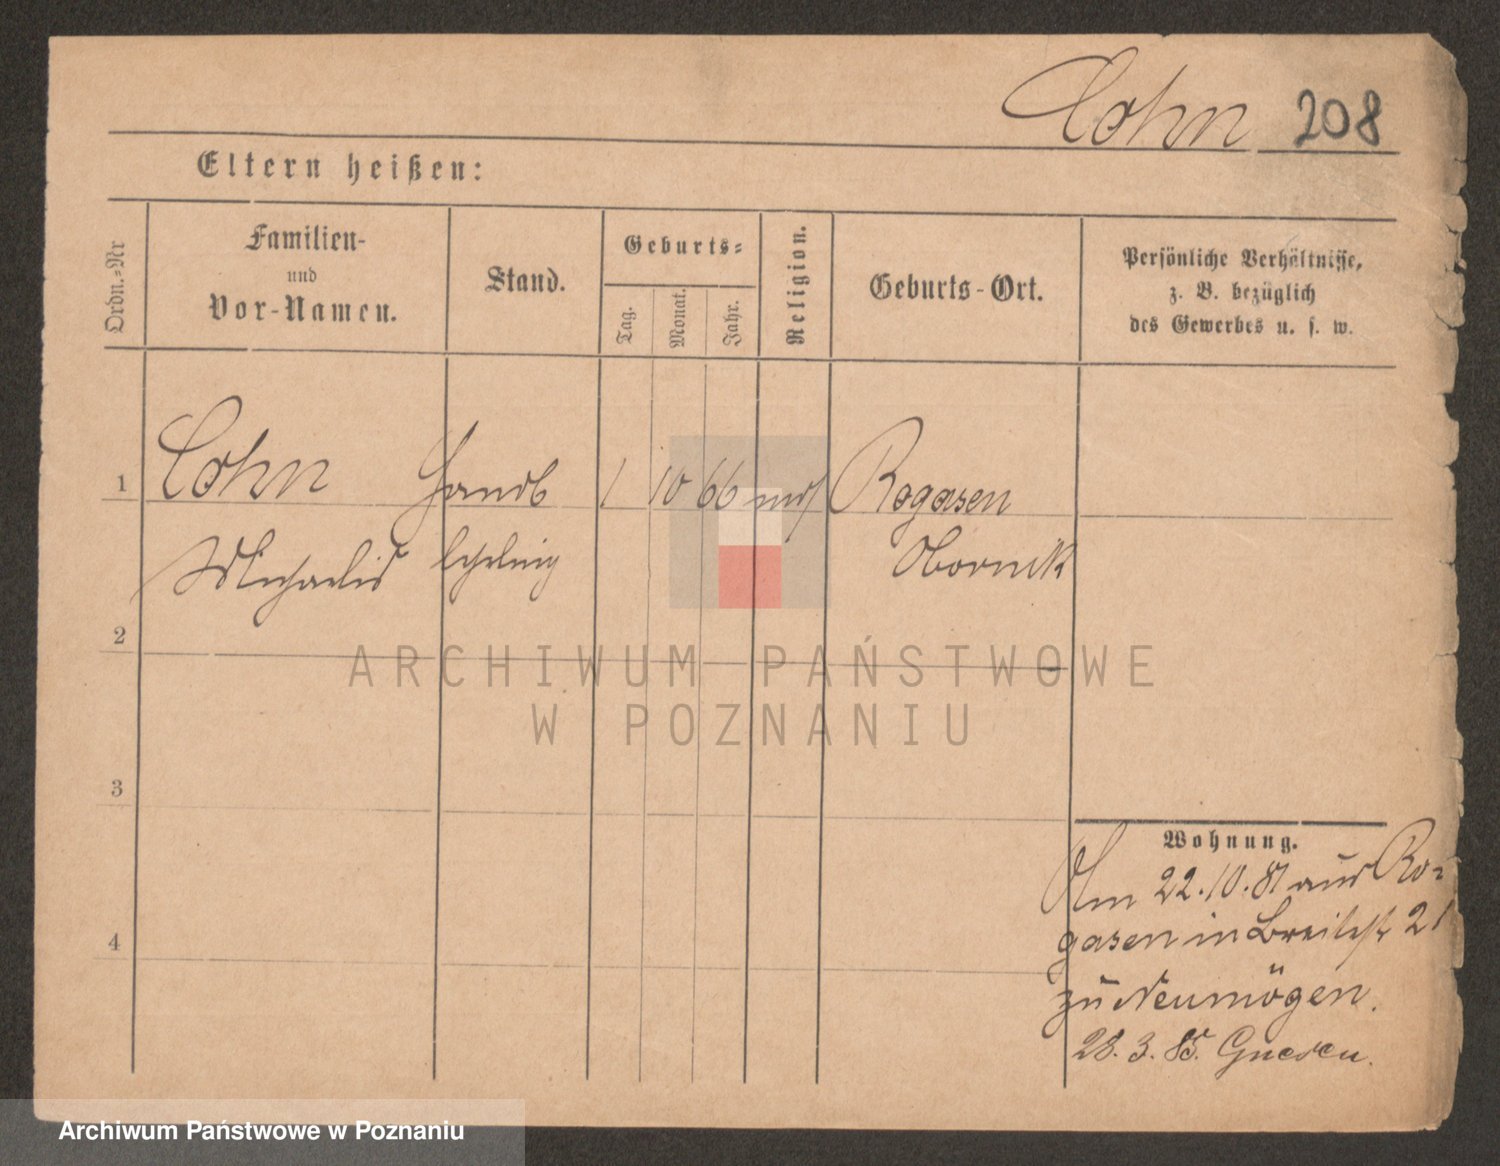 Cohn 208
Eltern heißen:
Ordn.=Nr
Familien-
und
Vor-Namen.
Stand.
Geburts=
Tag.
Monat.
Jahr.
Religion.
Geburts-Ort.
Persönliche Verhältnisse,
z. B. bezüglich
des Gewerbes u. s. w.
1 Cohn Handls 1 10 66 mos Rogasen
Michaelis lehrling Obornik
2
3
4
Wohnung.
Am 22.10.81 aus Ro=
gasen in Breitestr 21
zu Neumögen.
28. 3. 85. Gnesen.
ARCHIWUM PAŃSTWOWE
W POZNANIU
Archiwum Państwowe w Poznaniu